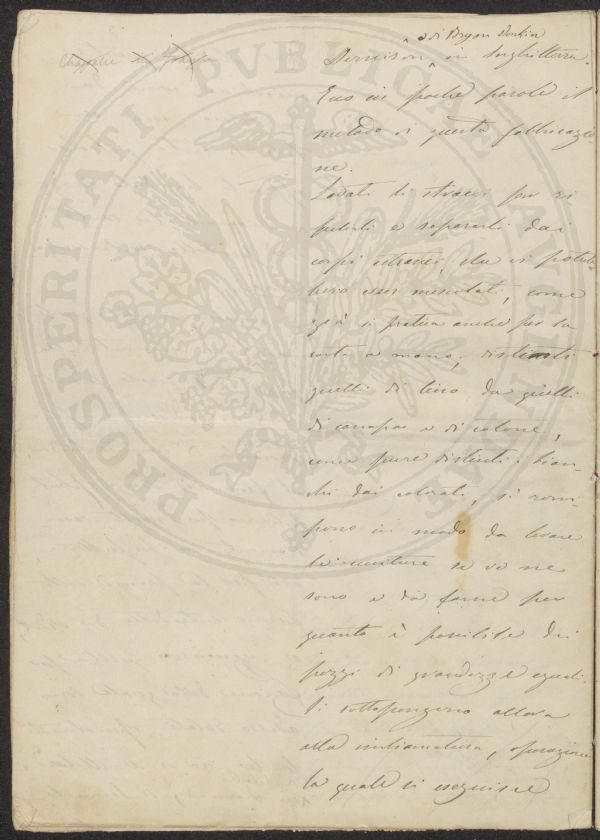 o di Bryan Donkin
Dennison in Inghilterra.
Ecco in poche parole il
metodo di questa fabbricazio
ne.
Lavati li stracci per ri
pulirli e separarli dai
corpi estranei, che vi potreb
bero esser mescolati, come
già si pratica anche per la
carta a mano, distinti
quelli di lino da quelli
di canapa e di cotone,
come pure distinti i bian
chi dai colorati, si rom
pono in modo da levare
le cuciture se ve ne
sono e da farne per
quanto è possibile dei
pezzi di grandezze eguali.
Si sottopongono allora
alla imbiancatura, operazione
la quale si eseguisce
PROSPERITATI PUBLICAE AUGENDAE